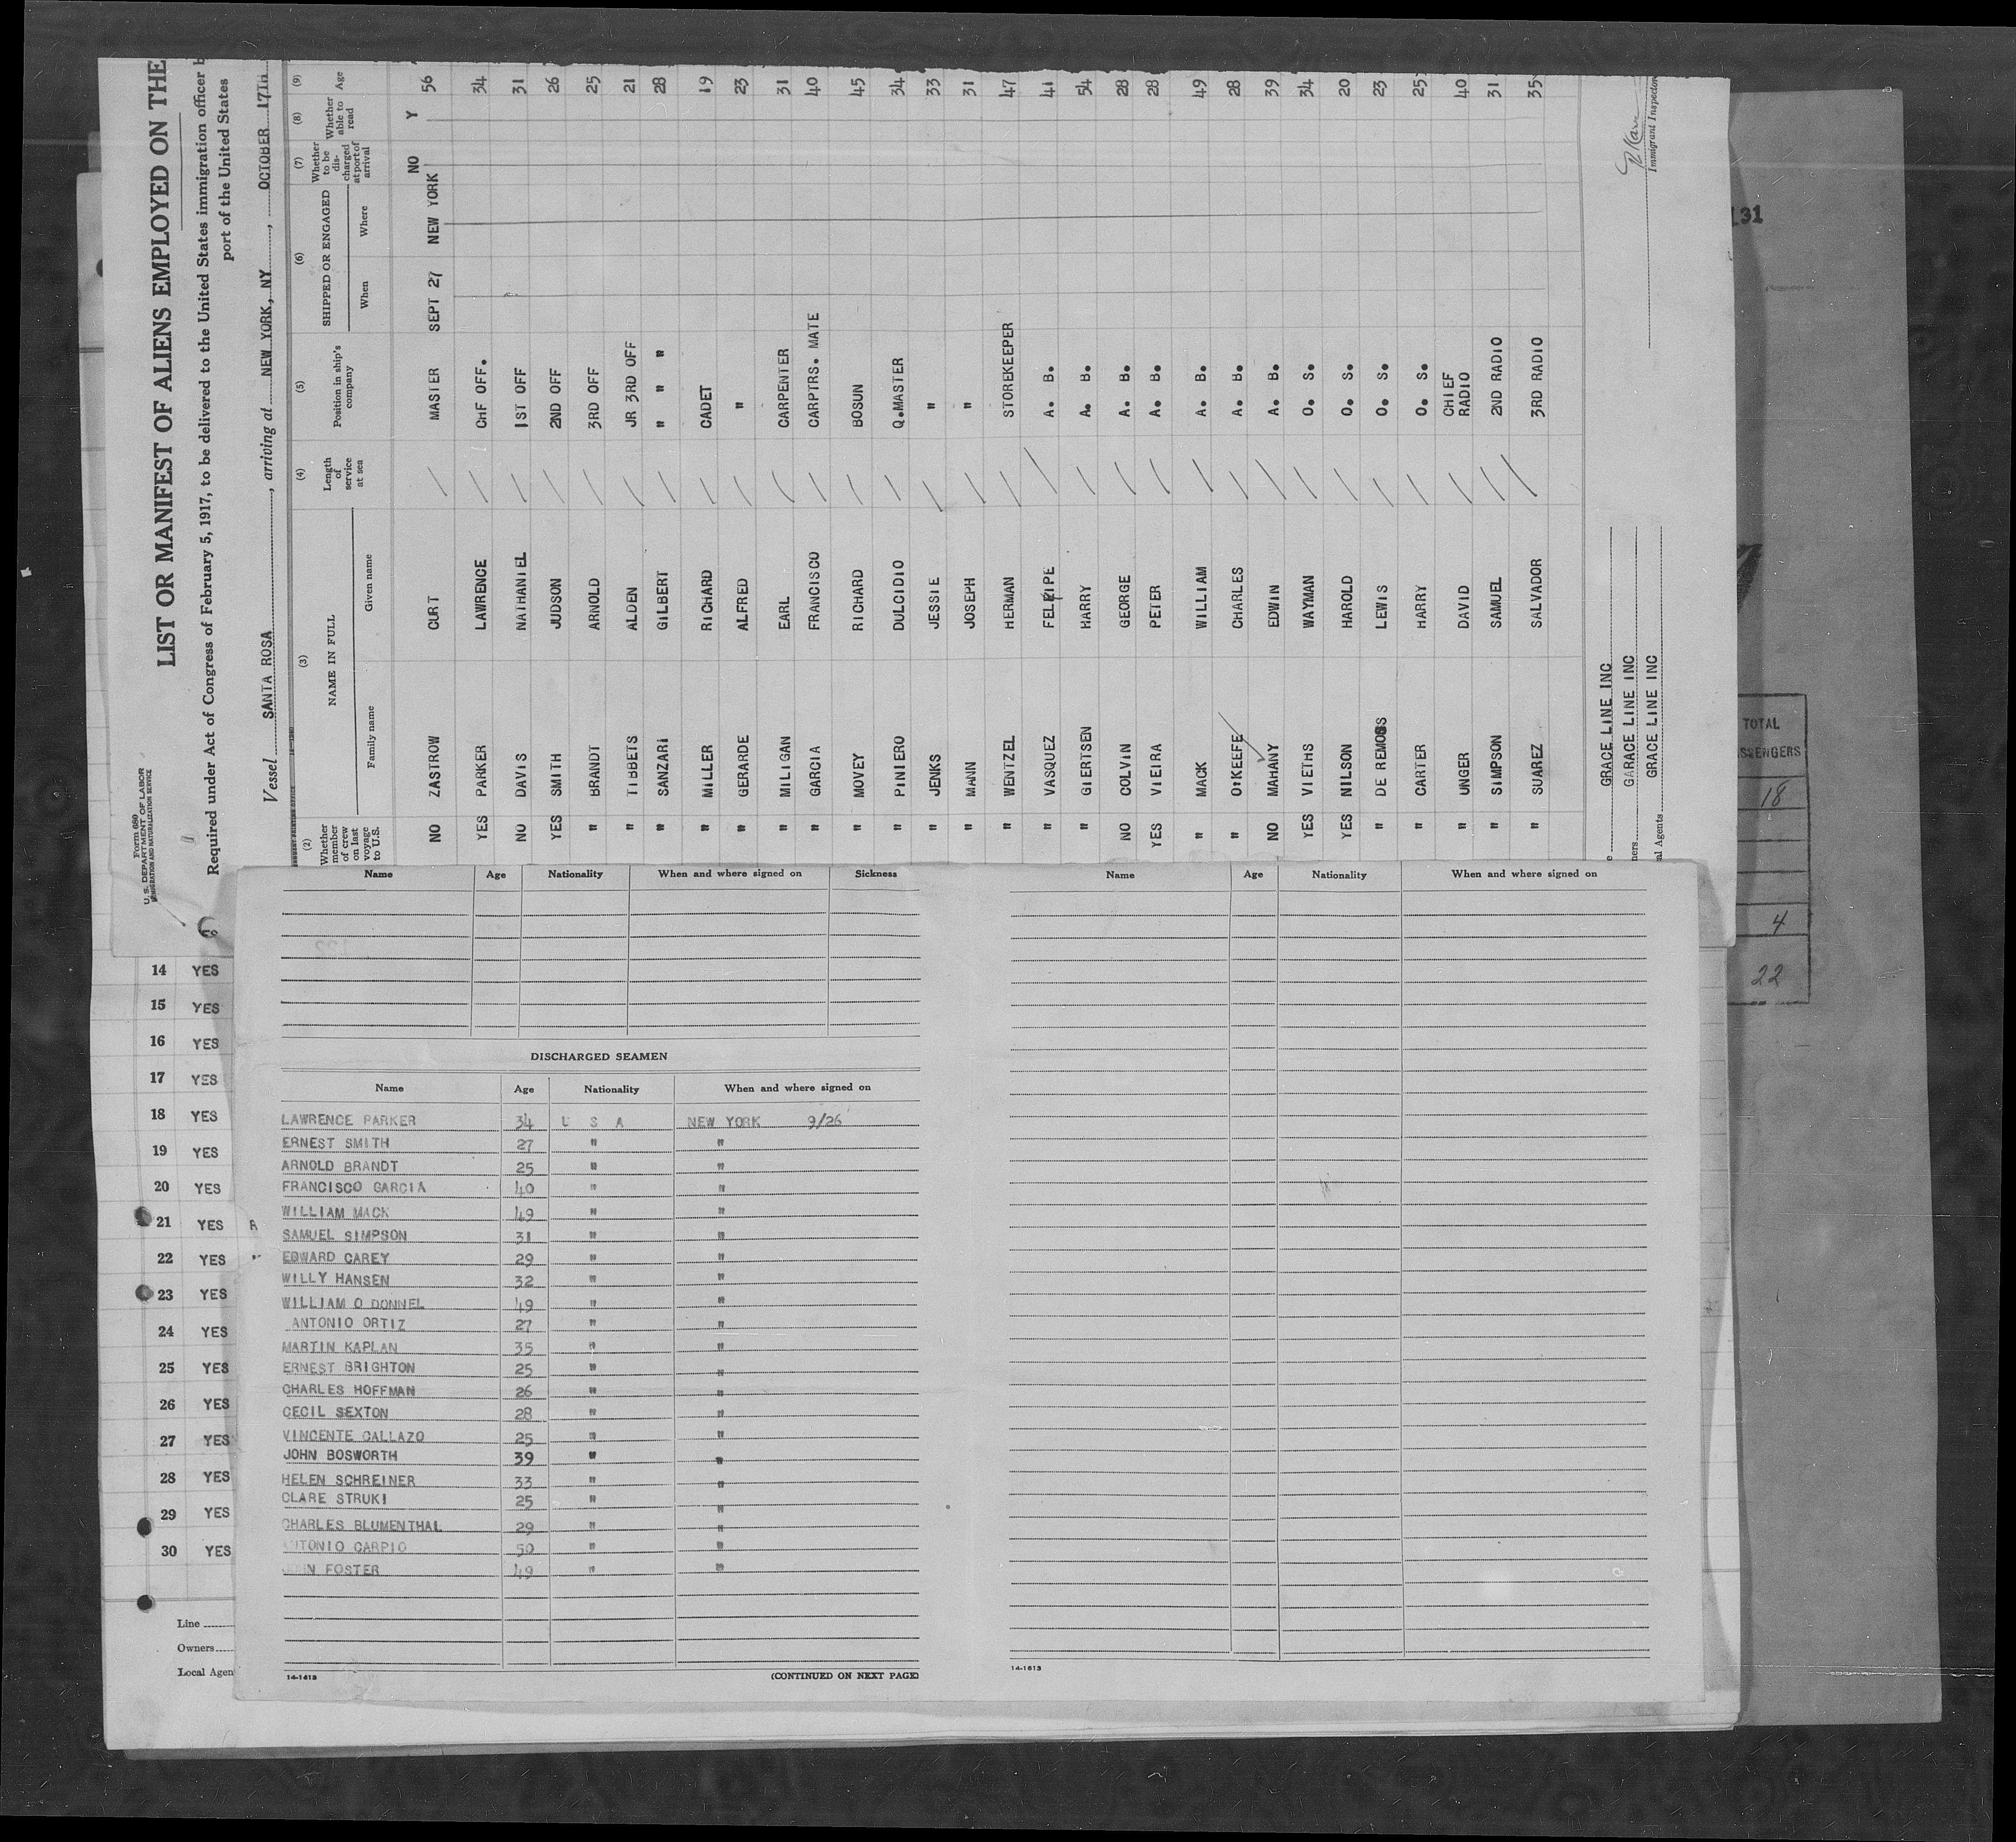 Form 680
U. S. DEPARTMENT OF LABOR
IMMIGRATION AND NATURALIZATION SERVICE
LIST OR MANIFEST OF ALIENS EMPLOYED ON THE
Required under Act of Congress of February 5, 1917, to be delivered to the United States immigration officer b
port of the United States
Vessel SANTA ROSA, arriving at NEW YORK, NY, OCTOBER 17TH
(2) (3) (4) (5) (6) (7) (8) (9)
Whether member of crew on last voyage to U.S. NAME IN FULL Family name Given name Length of service at sea Position in ship's company SHIPPED OR ENGAGED When Where Whether to be discharged at port of arrival Whether able to read Age
NO ZASTROW CURT MASTER SEPT 27 NEW YORK NO Y 56
YES PARKER LAWRENCE CHF OFF. 34
NO DAVIS NATHANIEL 1ST OFF 31
YES SMITH JUDSON 2ND OFF 26
" BRANDT ARNOLD 3RD OFF 25
" TIBBETS ALDEN JR 3RD OFF 21
" SANZARI GILBERT " " " 28
" MILLER RICHARD CADET 19
" GERARDE ALFRED " 23
" MILIGAN EARL CARPENTER 31
" GARCIA FRANCISCO CARPTRS. MATE 40
" MOVEY RICHARD BOSUN 45
" PINIERO DULCIDIO Q.MASTER 34
" JENKS JESSIE " 33
" MANN JOSEPH " 31
" WENTZEL HERMAN STOREKEEPER 47
" VASQUEZ FELIPE A. B. 41
" GIERTSEN HARRY A. B. 54
NO COLVIN GEORGE A. B. 28
YES VIEIRA PETER A. B. 28
" MACK WILLIAM A. B. 49
" O'KEEFE CHARLES A. B. 28
NO MAHANY EDWIN A. B. 39
YES VIETHS WAYMAN O. S. 34
YES NILSON HAROLD O. S. 20
" DE REMOSS LEWIS O. S. 23
" CARTER HARRY O. S. 25
" UNGER DAVID CHIEF RADIO 40
" SIMPSON SAMUEL 2ND RADIO 31
" SUAREZ SALVADOR 3RD RADIO 35
GRACE LINE INC
GARACE LINE INC
al Agents GRACE LINE INC
Immigrant Inspector
131
TOTAL
SSENGERS
18
4
22
14 YES
15 YES
16 YES
17 YES
18 YES
19 YES
20 YES
21 YES
22 YES
23 YES
24 YES
25 YES
26 YES
27 YES
28 YES
29 YES
30 YES
Line
Owners
Local Agen
Name Age Nationality When and where signed on Sickness
DISCHARGED SEAMEN
Name Age Nationality When and where signed on
LAWRENCE PARKER 34 U S A NEW YORK 9/26
ERNEST SMITH 27 " "
ARNOLD BRANDT 25 " "
FRANCISCO GARCIA 40 " "
WILLIAM MACK 49 " "
SAMUEL SIMPSON 31 " "
EDWARD CAREY 29 " "
WILLY HANSEN 32 " "
WILLIAM O DONNEL 49 " "
ANTONIO ORTIZ 27 " "
MARTIN KAPLAN 35 " "
ERNEST BRIGHTON 25 " "
CHARLES HOFFMAN 26 " "
CECIL SEXTON 28 " "
VINCENTE CALLAZO 25 " "
JOHN BOSWORTH 39 " "
HELEN SCHREINER 33 " "
CLARE STRUKI 25 " "
CHARLES BLUMENTHAL 29 " "
ANTONIO CARPIO 50 " "
JOHN FOSTER 49 " "
14-1613 (CONTINUED ON NEXT PAGE)
Name Age Nationality When and where signed on
14-1613